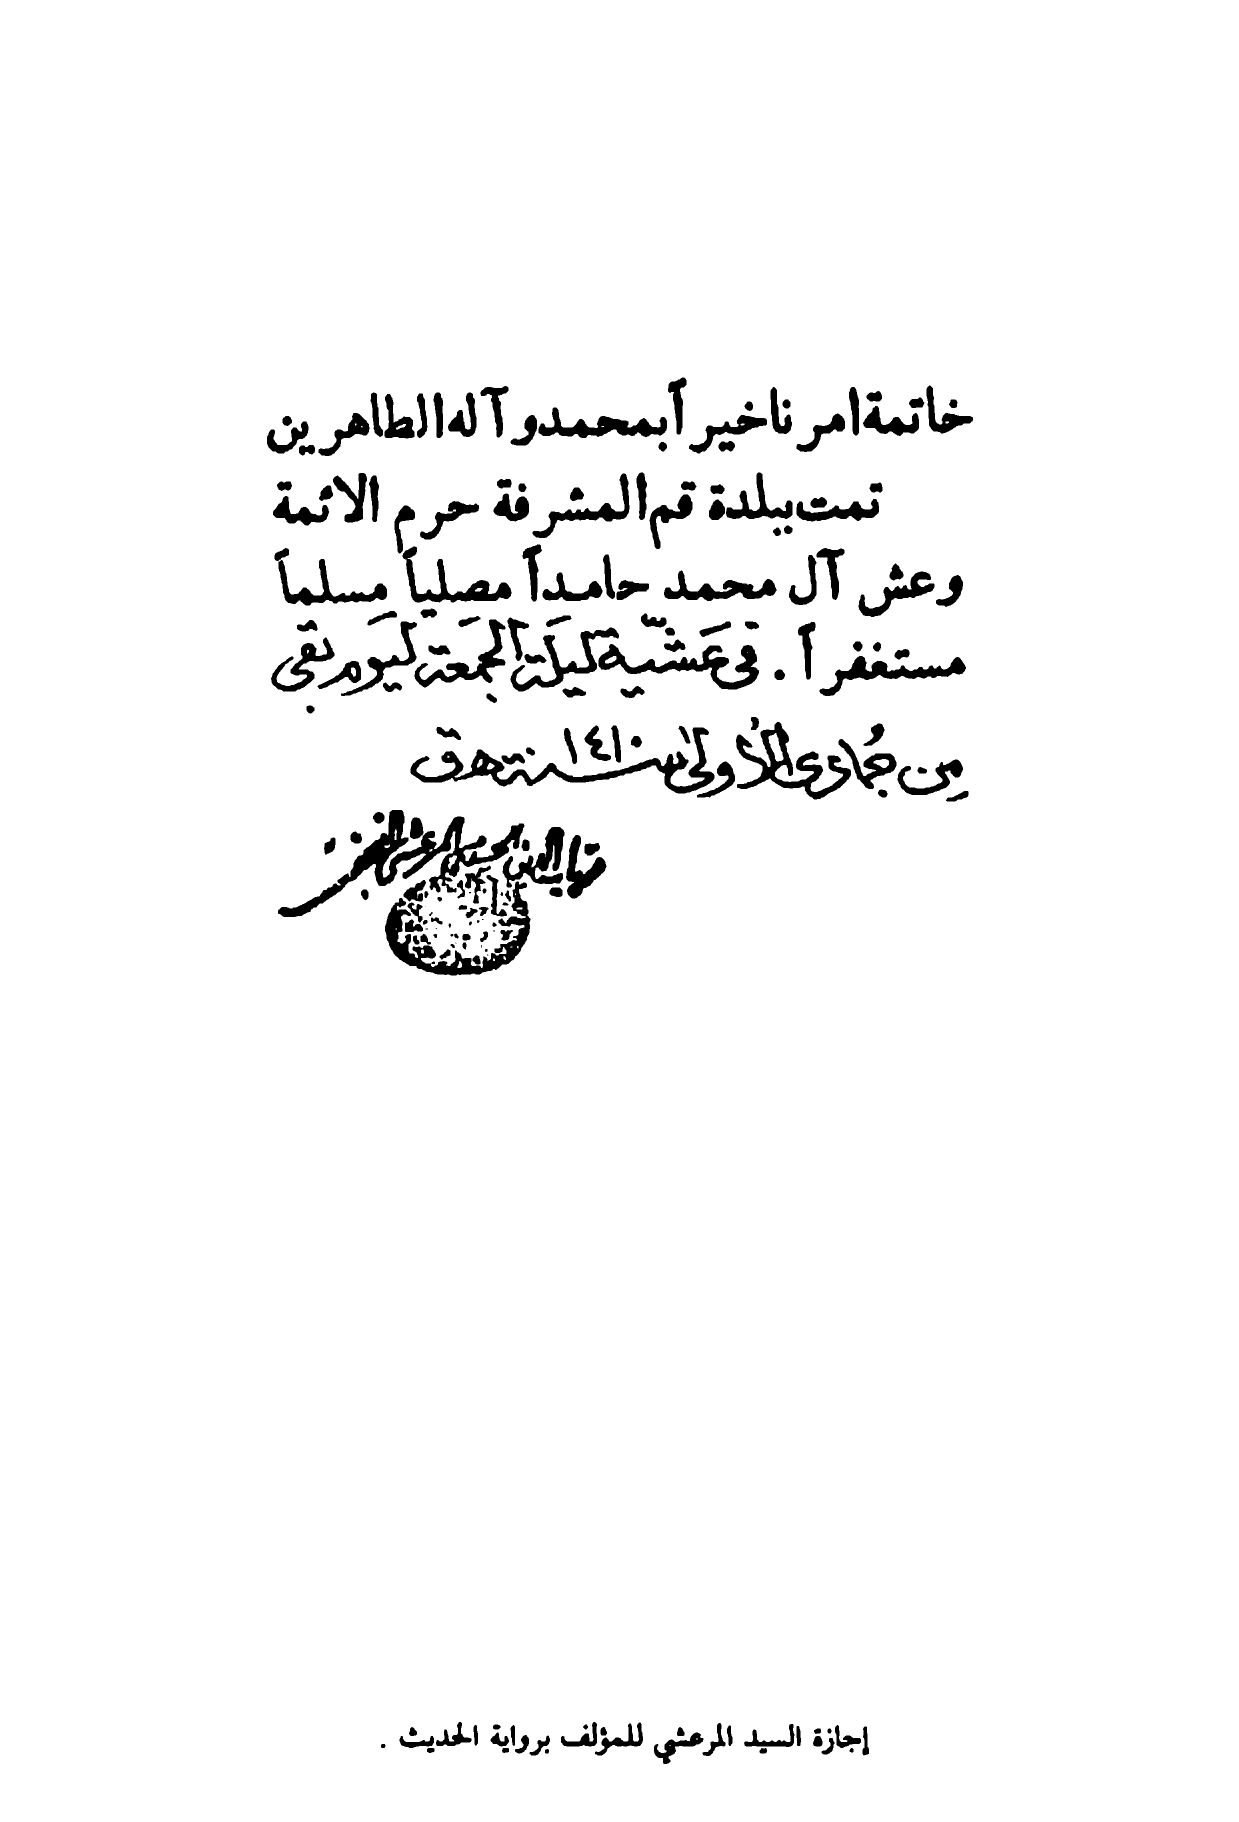 خاتمة امرنا خيراً بمحمد وآله الطاهرين
تمت ببلدة قم المشرفة حرم الائمة
وعش آل محمد حامداً مصلياً مسلماً
مستغفراً . في عَشيّة ليلَة الجمَعة ليَوم بقى
مِن جُمادى الأولى سنة ١٤١٠ هق
شهاب الدين الحسيني المرعشي النجفي
إجازة السيد المرعشي للمؤلف برواية الحديث .